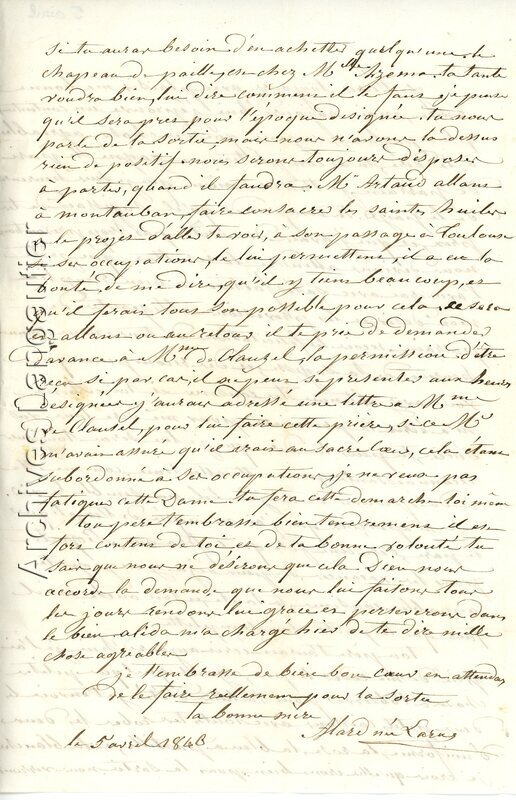 si tu auras besoin d'en achetter quelqu'une, le
chapeau de paille, est chez Mlle ta tante
voudra bien, lui dire comment il le faut, je pense
qu'il sera pres pour l'epoque designée, tu nous
parle de la sortie, mais nous n'avons la dessus
rien de positif nous serons toujours disposer
à parter, quand il faudra, Mr Artaud allant
à montauban, faire consacre les saintes huiles
a le projet d'aller te voir, à son passage à Toulouse
si ses occupations, le lui permettent, il a eu la
bonté, de me dire, qu'il y tien beaucoup, et
qu'il ferait tous son possible pour cela, ce sera
en allant ou au retour, il te prie de demander
d'avance à Mme de Clauzel, la permission, d'être
recu si par cas, il ne peut se presenter aux heures
designées, j'aurais adressé une lettre a Mme
de Clausel, pour lui faire cette prière, si ce Mr
m'avait assuré qu'il irait au sacré cœur, cela étant
subordonné à ses occupations, je ne veux pas
fatigue cette Dame tu fera cette demarche toi même
ton père t'embrasse bien tendrement il est
fort content de toi et de ta bonne volonté tu
sais que nous ne désirons que cela Dieu nous
accorde la demande que nous lui faisons tous
les jours rendons lui grace et perseverons dans
le bien alida m'a chargé hier de te dire mille
chose agreables
je t'embrasse de bien bon cœur en attendant
de le faire reellement pour la sortie
ta bonne mère
Alard née
le 5 avril 1843
Archives Langoutier
5 avril